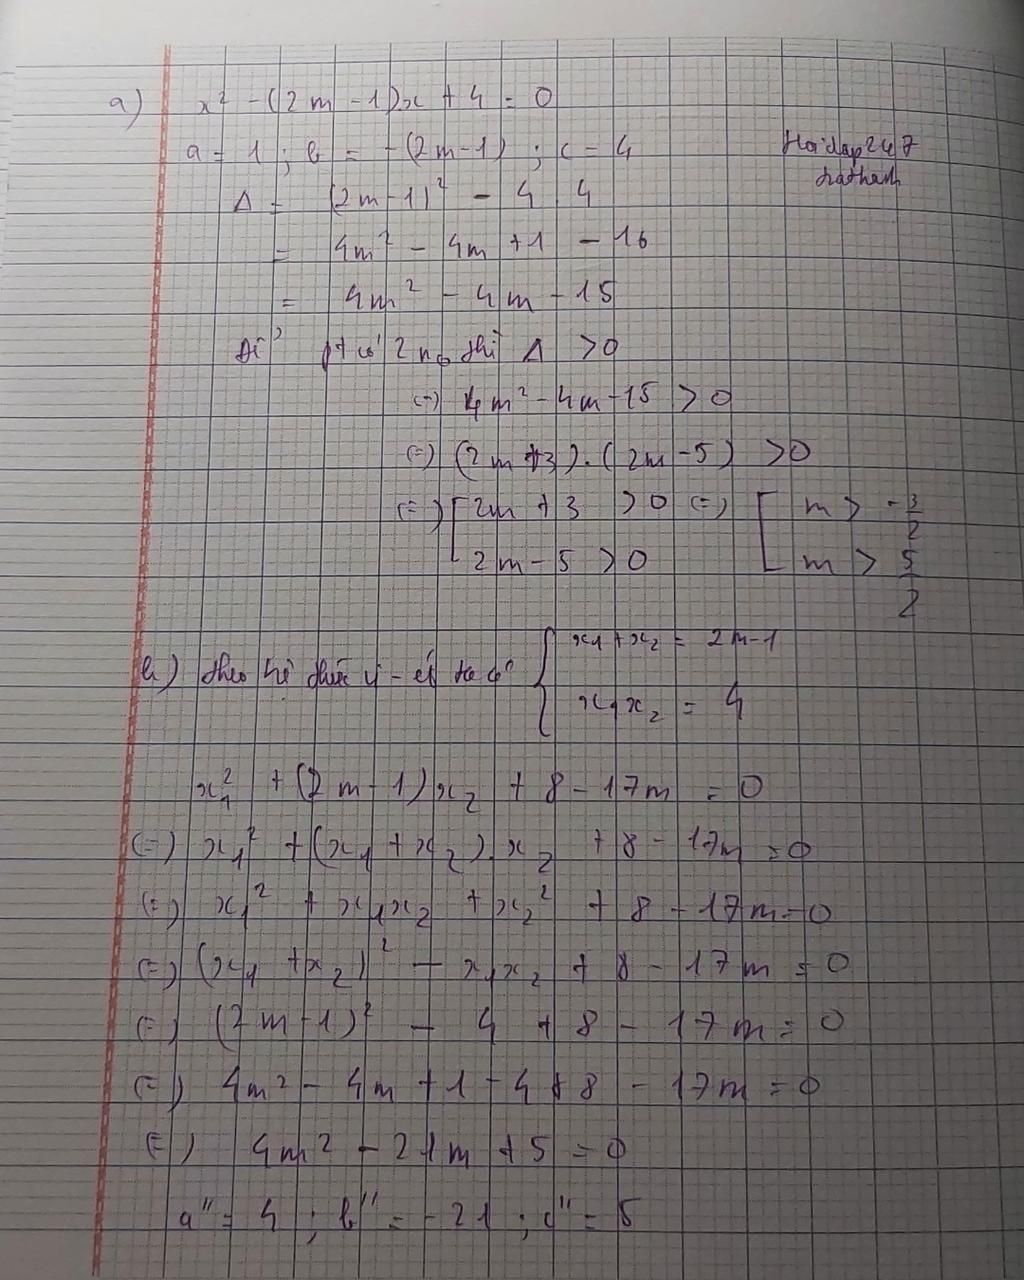 a) x² - (2m - 1)x + 4 = 0
a = 1 ; b = -(2m-1) ; c = 4
Hoidap247
Δ = (2m-1)² - 4.4
= 4m² - 4m + 1 - 16
= 4m² - 4m - 15
Để pt có 2 no thì Δ > 0
(=) 4m² - 4m - 15 > 0
(=) (2m+3).(2m-5) > 0
(=) [ 2m + 3 > 0 (=) [ m > -3/2
2m - 5 > 0 m > 5/2
b) theo hệ thức vi-ét ta có { x₁ + x₂ = 2m-1
x₁x₂ = 4
x₁² + (2m-1)x₂ + 8 - 17m = 0
(=) x₁² + (x₁ + x₂).x₂ + 8 - 17m = 0
(=) x₁² + x₁x₂ + x₂² + 8 - 17m = 0
(=) (x₁ + x₂)² - x₁x₂ + 8 - 17m = 0
(=) (2m-1)² - 4 + 8 - 17m = 0
(=) 4m² - 4m + 1 - 4 + 8 - 17m = 0
(=) 4m² - 21m + 5 = 0
a'' = 4 ; b'' = -21 ; c'' = 5